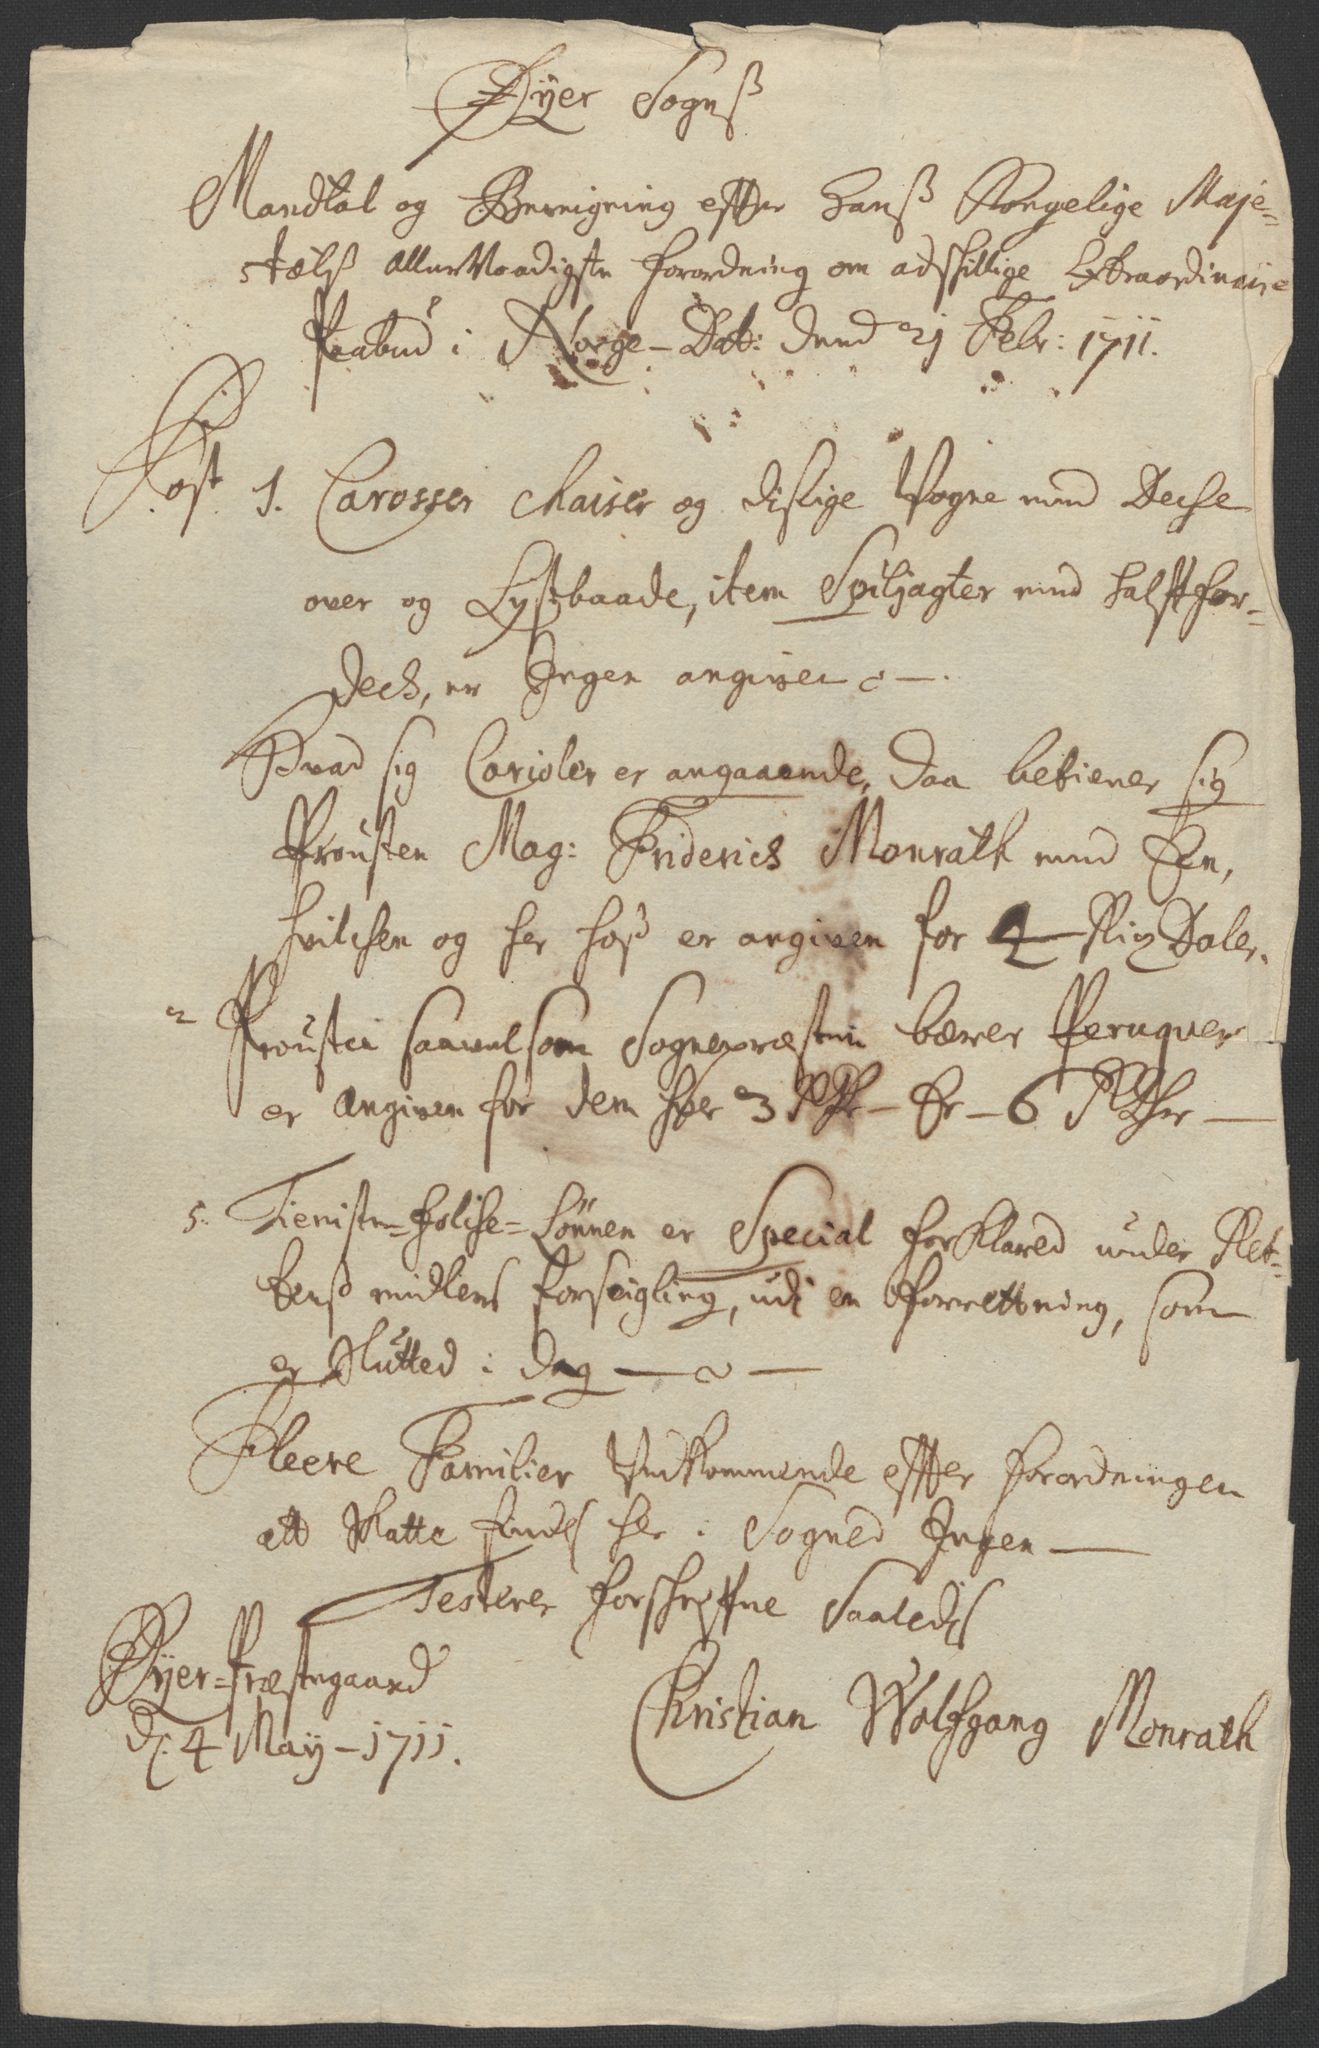 Øÿer Sognß
Mandtal og Beregning effter Hanß Kongelige Maje-
stætß allernaadigste forordning om adskillige Extraordinaire
Paabud i Norge - Dat: dend 21 Febr: 1711.
Post 1. Carosser Chaiser og dislige Vogne med Deche
over og Lystbaade, item Spiljagter med halfft for-
dech, er Ingen angiven
Hvad sig Carioler er angaaende, daa betiener sig
Prousten Mag: Friderich Monrath med Een,
hvilchen og her hoß er angiven for 4 Rix Daler.
2 Prousten saavelsom Sognepræsten bærer Peruquer
er angiven for dem hver 3 Rdr - Er - 6 Rdher
5. Tieniste-folche-Lønnen er Special forklared under Ret-
tens midlens forseigling, udi en forrettning, som
er Slutted i dag
Fleere Familier Vedkommende effter forordningen
att Skatte findes her i Sogned Ingen
Testerer forskreffne Saaledis
Øÿer-Præstegaard
d: 4 Maÿ - 1711.
Christian Wolfgang Monrath